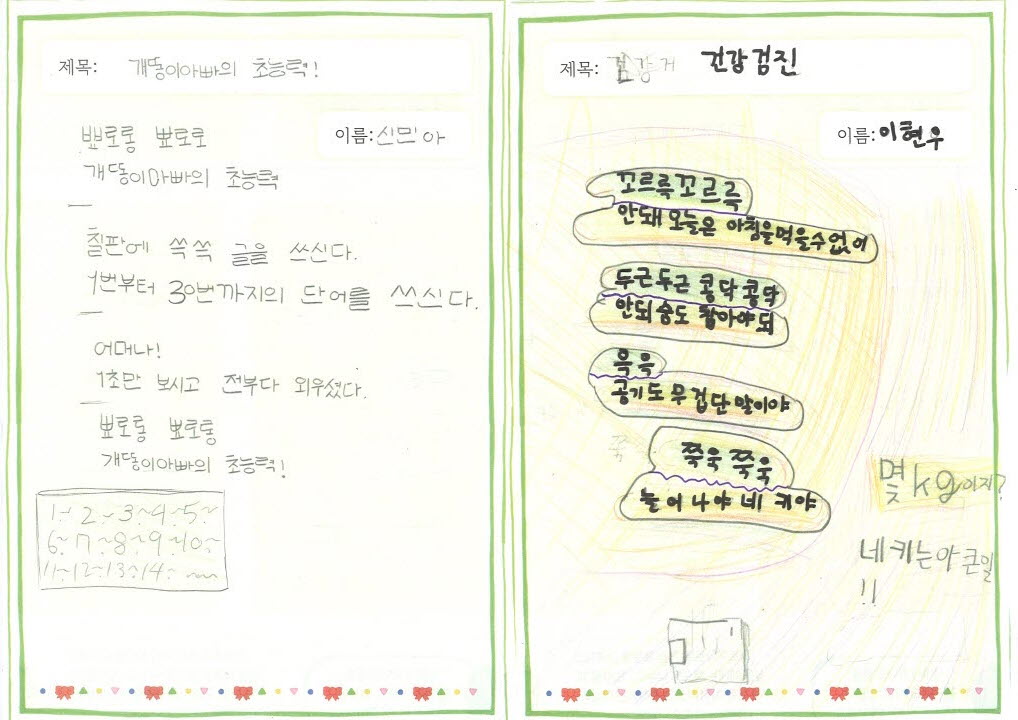 제목: 개똥이아빠의 초능력!
이름:신민아
뾰로롱 뾰로로
개똥이아빠의 초능력
칠판에 쓱쓱 글을 쓰신다.
1번부터 30번까지의 단어를 쓰신다.
어머나!
1초만 보시고 전부다 외우셨다.
뾰로롱 뾰로롱
개똥이아빠의 초능력!
1~ 2~3~4~5~
6~7~8~9~10~
11~12~13~14~
제목: 건강검진
이름:이현우
꼬르륵꼬르륵
안돼 오늘은 아침을먹을수없어
두근두근 콩닥콩닥
안되 숨도 참아야되
윽윽
공기도 무겁단 말이야
쭉욱 쭉욱
늘어나야 네 키야
몇kg이지?
네키는아
!!